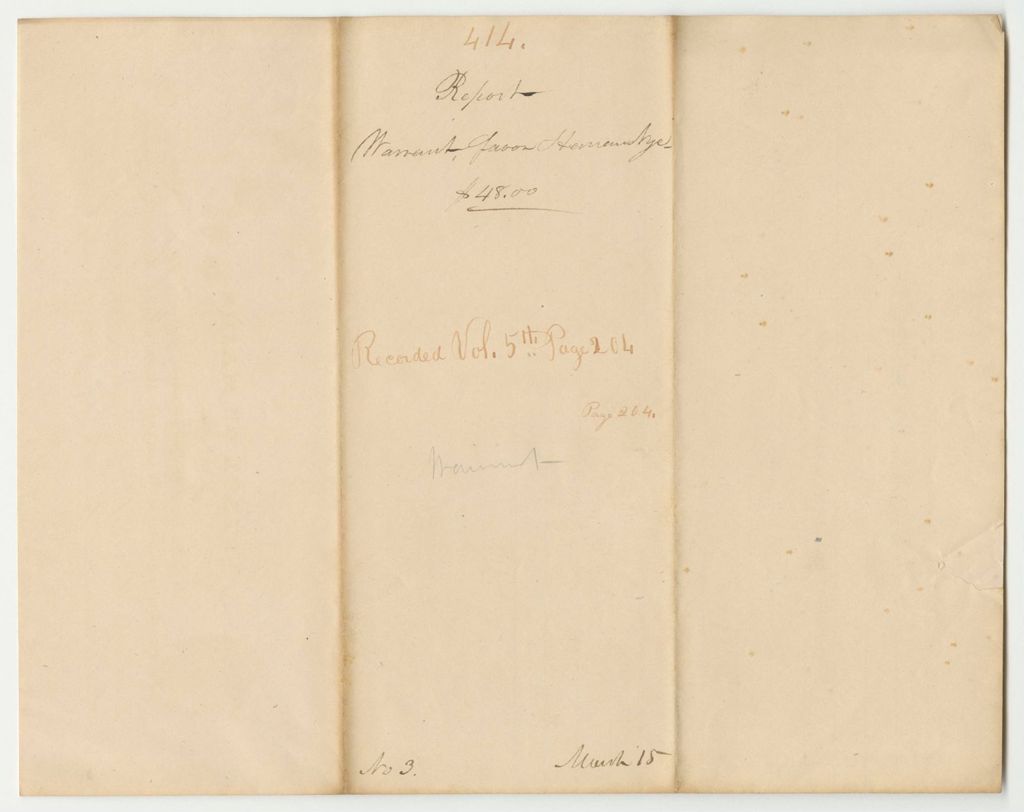 414.
Report
Warrant, favor Herman Nye
$48.00
Recorded Vol. 5th Page 204
Page 204.
Warrant
No 3. March 15